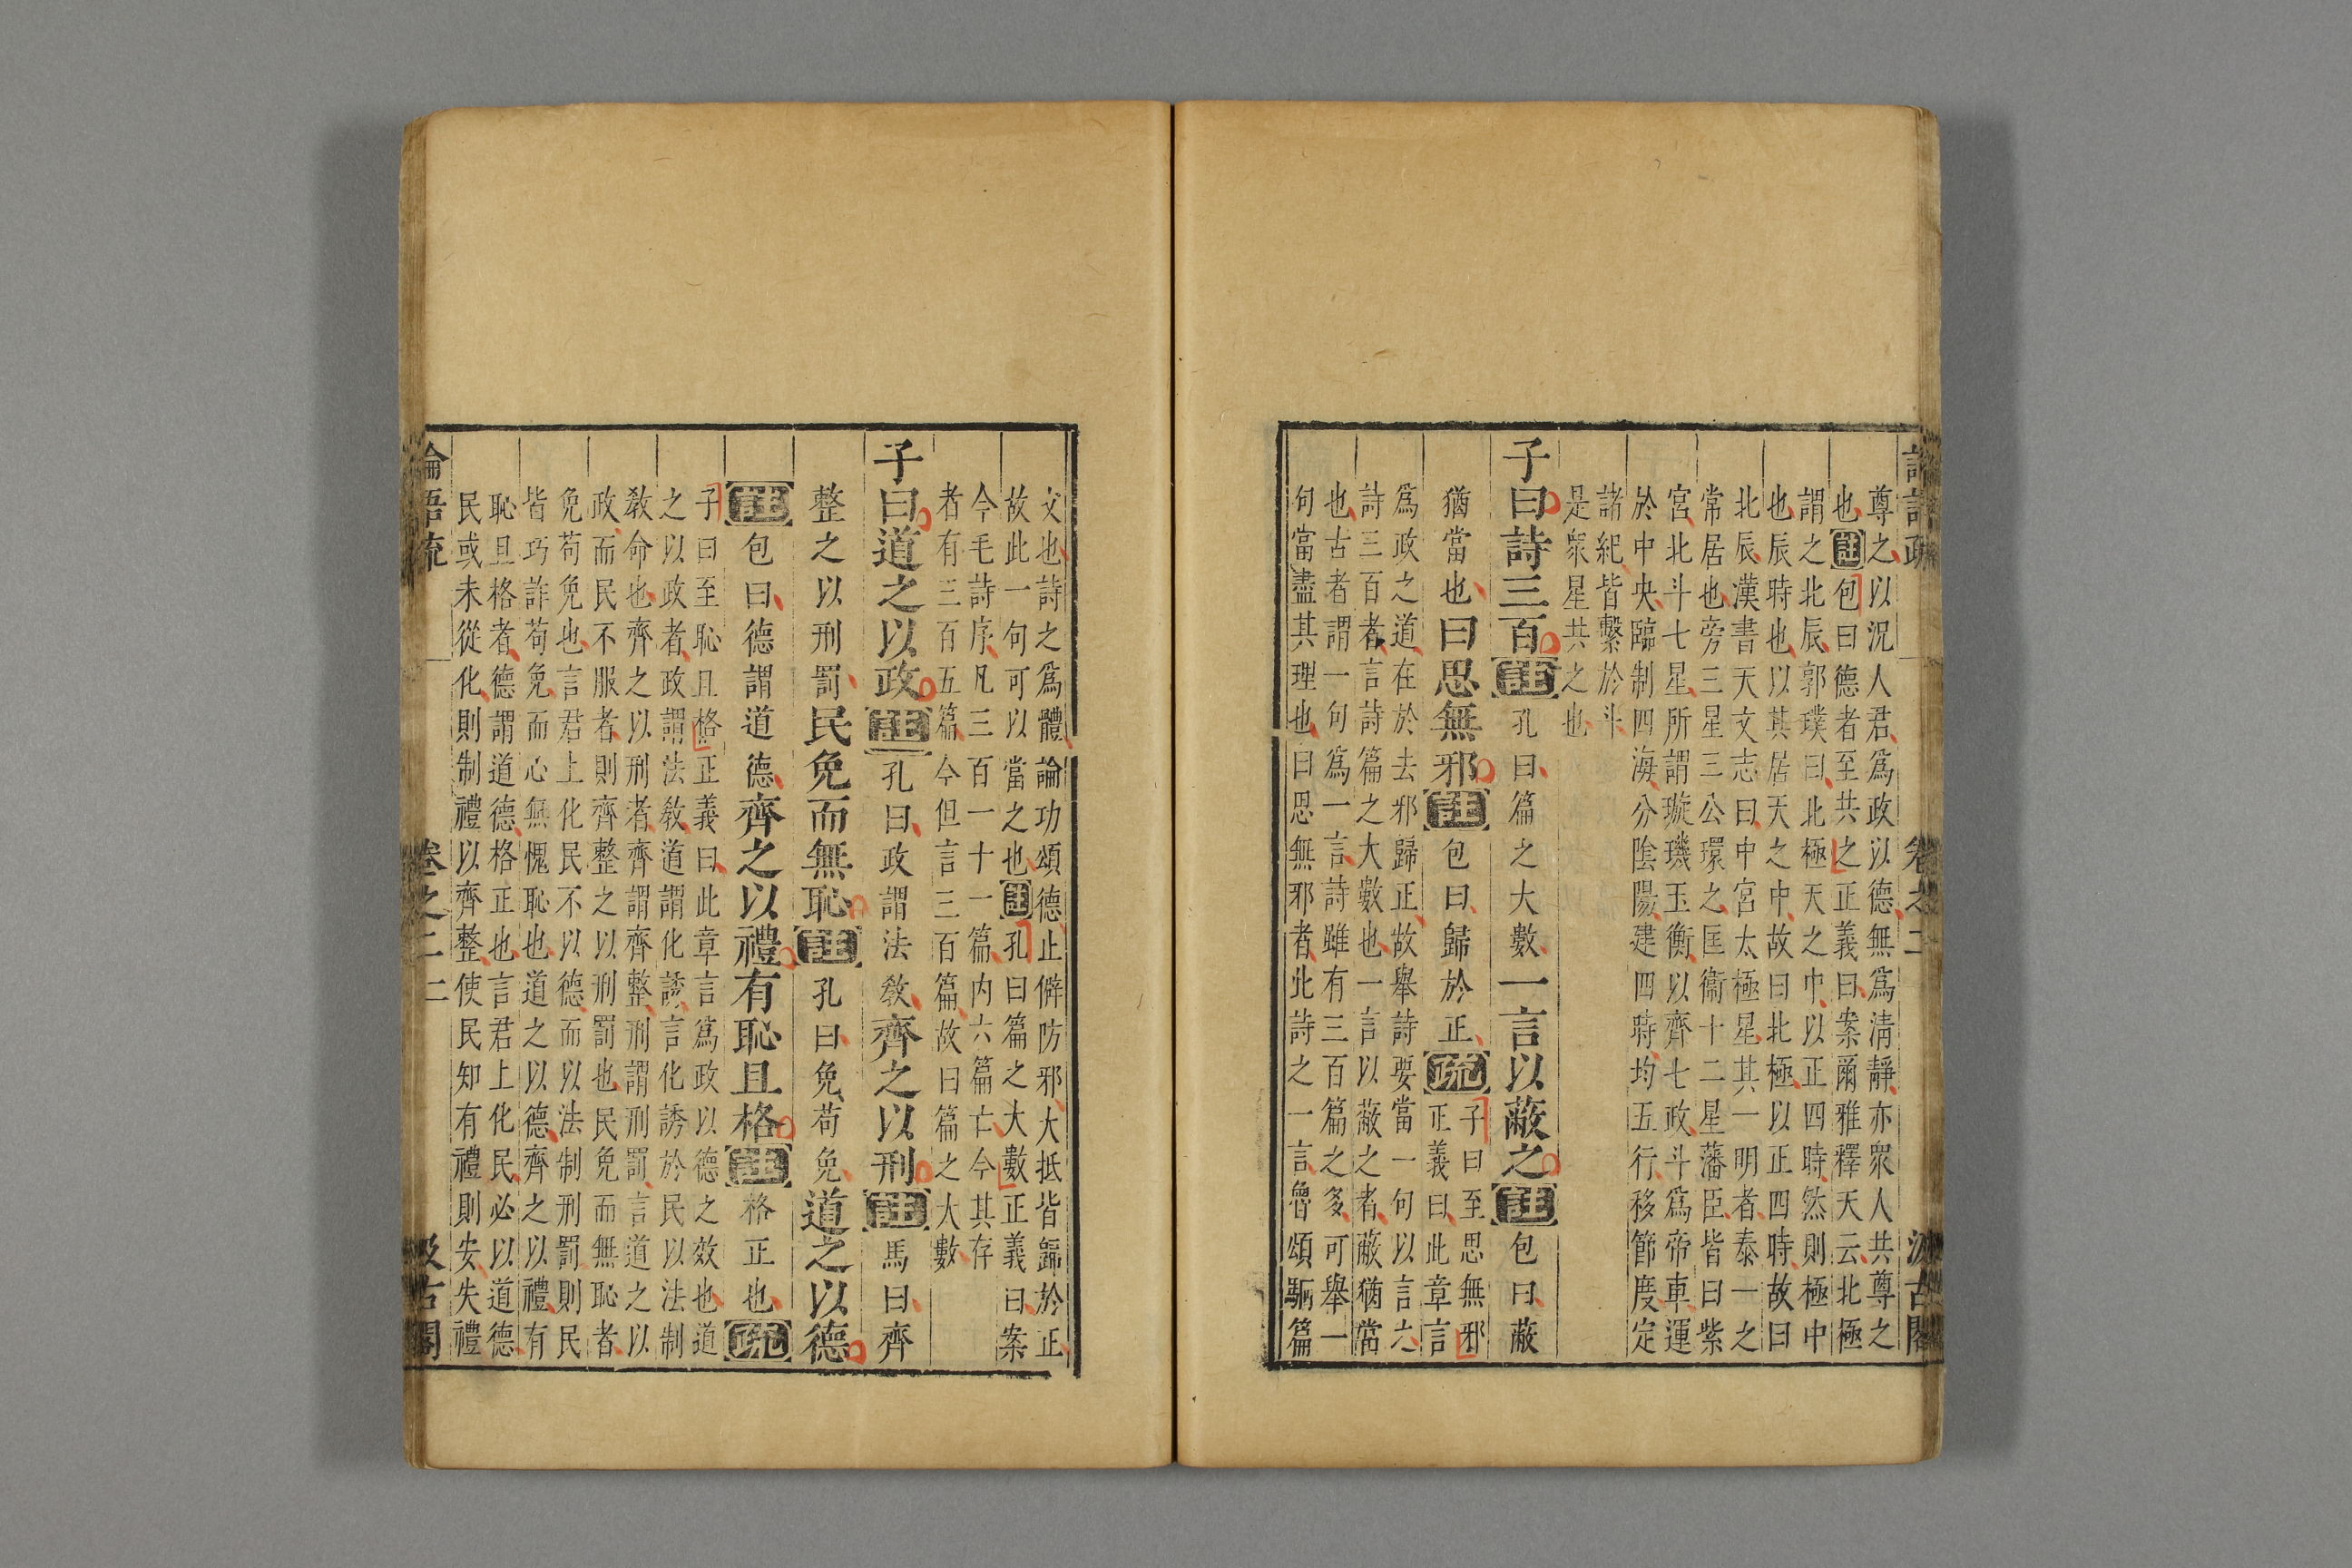 尊之以況人君爲政以德無爲清靜亦衆人共尊之
也註包曰德者至共之正義曰案爾雅釋天云北極
謂之北辰郭璞曰北極天之中以正四時然則極中
也辰時也以其居天之中故曰北極以正四時故曰
北辰漢書天文志曰中宮太極星其一明者泰一之
常居也旁三星三公環之匡衞十二星藩臣皆曰紫
宮北斗七星所謂璇璣玉衡以齊七政斗爲帝車運
於中央臨制四海分陰陽建四時均五行移節度定
諸紀皆繫於斗
是衆星共之也
子曰詩三百註孔曰篇之大數一言以蔽之註包曰蔽
猶當也曰思無邪註包曰歸於正疏
子曰至思無邪
正義曰此章言
爲政之道在於去邪歸正故舉詩要當一句以言六
詩三百者言詩篇之大數也一言以蔽之者蔽猶當
也古者謂一句爲一言詩雖有三百篇之多可舉一
句當盡其理也曰思無邪者此詩之一言魯頌駉篇
卷之二
汲古閣
文也詩之爲體論功頌德止僻防邪大抵皆歸於正
故此一句可以當之也註孔曰篇之大數正義曰案
今毛詩序凡三百一十一篇内六篇亡今其存
者有三百五篇今但言三百篇故曰篇之大數
子曰道之以政註孔曰政謂法敎齊之以刑註馬曰齊
整之以刑罰民免而無恥註孔曰免苟免道之以德
註包曰德謂道德齊之以禮有恥且格註格正也疏
子曰至恥且格正義曰此章言爲政以德之效也道
之以政者政謂法敎道謂化誘言化誘於民以法制
敎命也齊之以刑者齊謂齊整刑謂刑罰言道之以
政而民不服者則齊整之以刑罰也民免而無恥者
免苟免也言君上化民不以德而以法制刑罰則民
皆巧詐苟免而心無愧恥也道之以德齊之以禮有
恥且格者德謂道德格正也言君上化民必以道德
民或未從化則制禮以齊整使民知有禮則安失禮
論語疏
卷之二
二
汲古閣